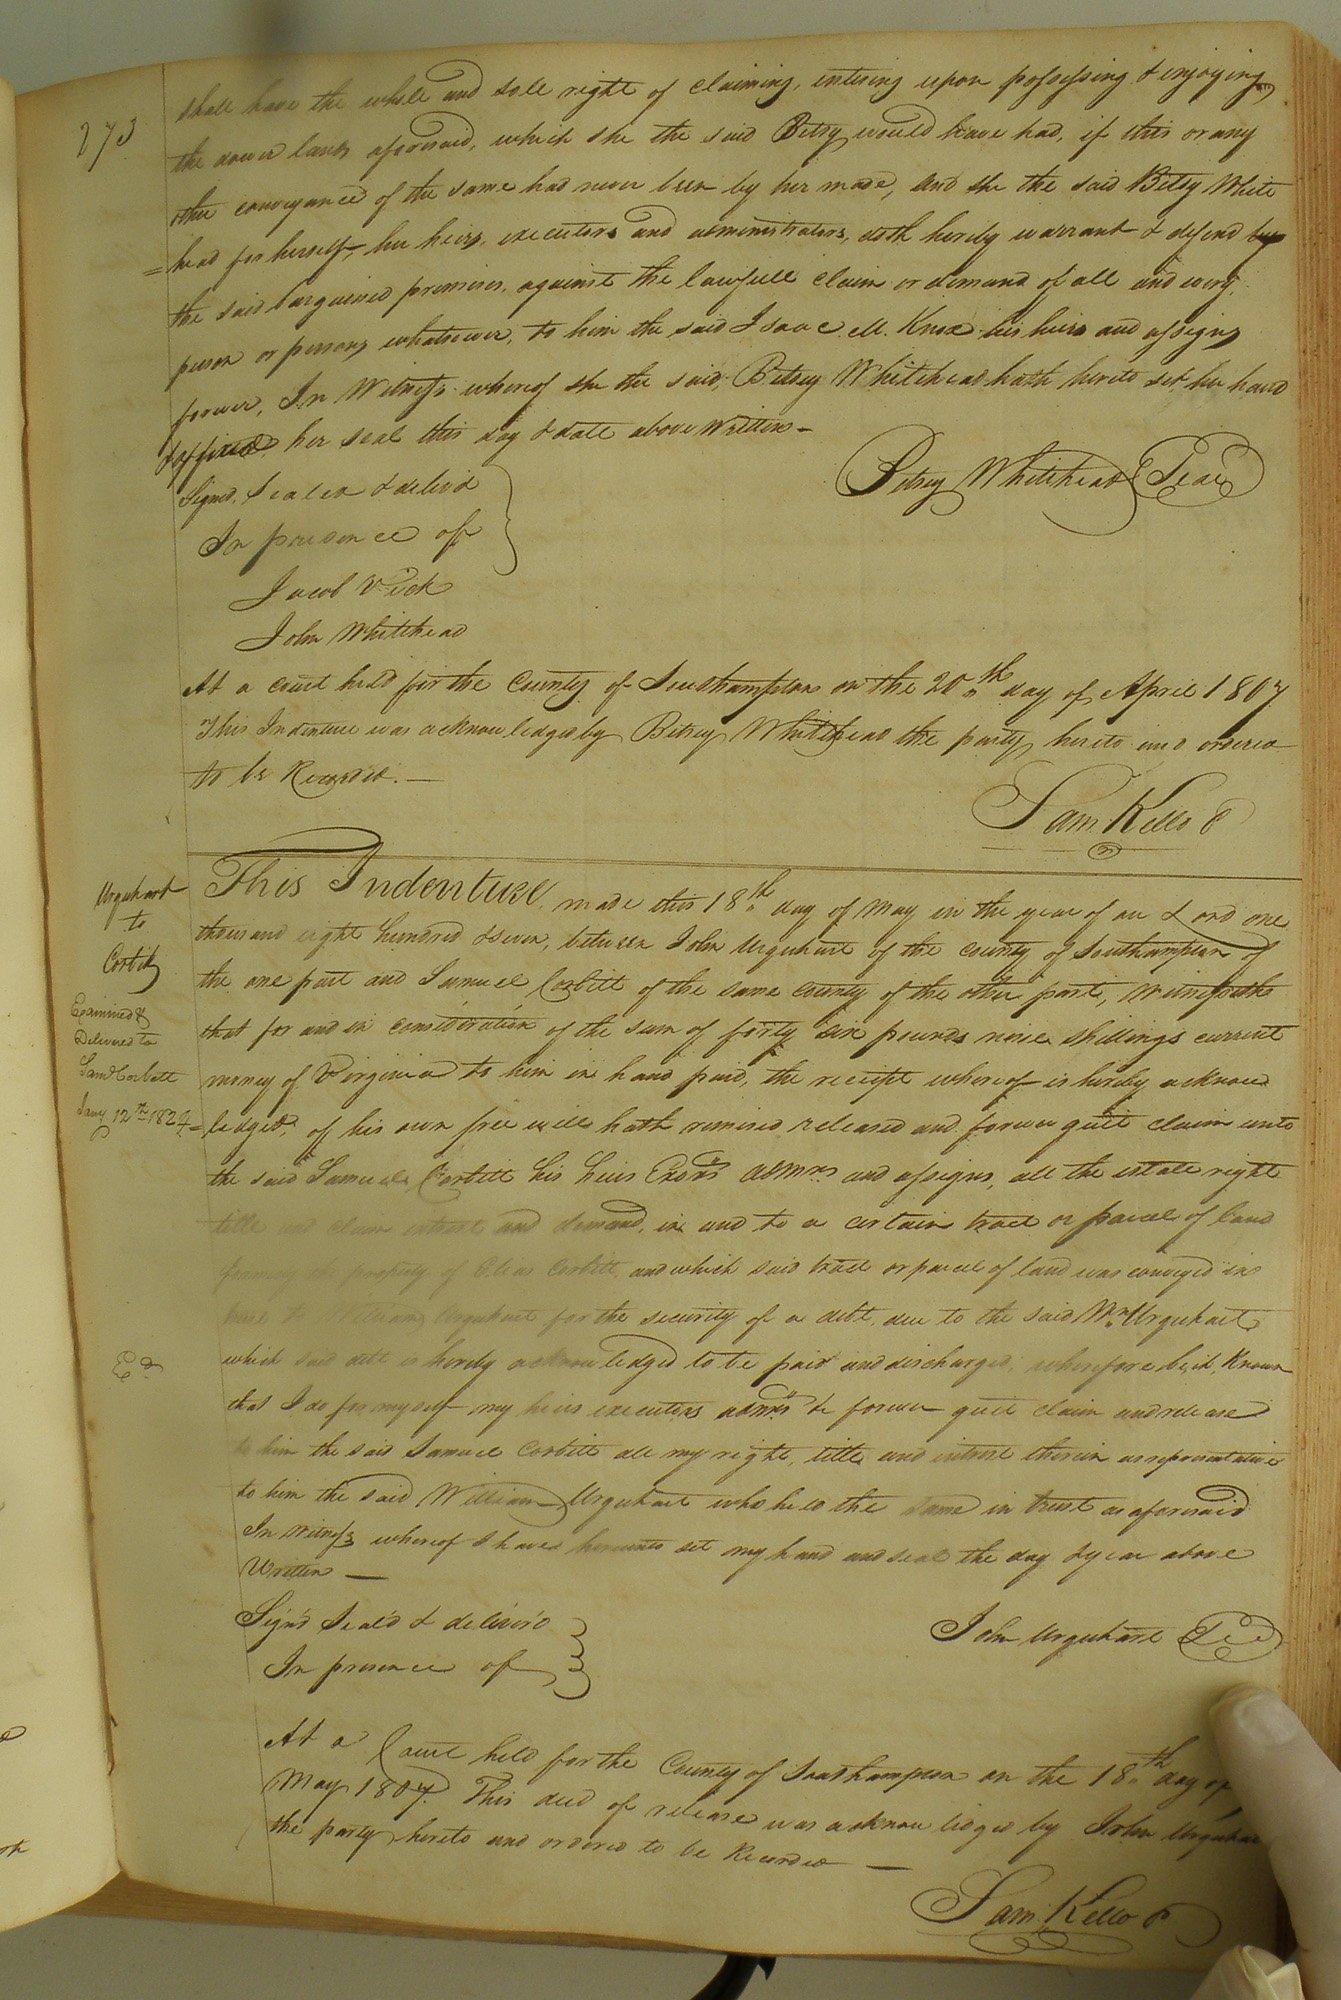 273
shall have the whole and sole right of claiming, entering upon possessing & enjoying
the dower lands aforesaid, which she the said Betsy would have had, if this or any
other conveyance of the same had never been by her made, and she the said Betsy White
=head for herself, her heirs, executors and administrators, doth hereby warrant & defend
the said bargained premises, against the lawfull claim or demand of all and every
person or persons whatsoever, to him the said Isaac M. Knox his heirs and assigns
forever, In Witness whereof she the said, Betsey Whitehead hath hereto set her hand
& affixed her seal this day & date above Written —
Betsey Whitehead Seal
Signed, Sealed & deliv'd
In presence of
Jacob Vick
John Whitehead
At a court held for the County of Southampton on the 20th day of April 1807
This Indenture was acknowledged by Betsey Whitehead the party hereto and ordered
to be Recorded. —
Sam Kello C
Urquhart
to
Corbitt
Examined &
Delivered to
Saml Corbett
Jany 12th 1824
This Indenture, made this 18th day of May in the year of our Lord one
thousand eight hundred & seven, between John Urquhart of the county of Southampton of
the one part and Samuel Corbitt of the same county of the other part, Witnesseth
that for and in consideration of the sum of forty six pounds nine shillings current
money of Virginia to him in hand paid, the receipt whereof is hereby acknow
=ledged, of his own free will hath remised released and forever quit claim unto
the said Samuel Corbitt his heirs Exors admrs and assigns, all the estate right
title and claim interest and demand, in and to a certain tract or parcel of land
formerly the property of Corbitt, and which said tract or parcel of land was conveyed in
trust to William Urquhart for the security of a debt, due to the said Wm Urquhart
Ed
which said debt is hereby acknowledged to be paid and discharged, wherefore be it Known
that I do for myself my heirs executors admrs &c forever quit claim and release
to him the said Samuel Corbitt all my right, title and interest therein as representative
to him the said William Urquhart who held the same in trust as aforesaid
In witness whereof I have hereunto set my hand and seal the day & year above
Written —
John Urquhart Seal
Sign'd Seal'd & deliver'd
In presence of
At a Court held for the County of Southampton on the 18th day of
May 1807. This deed of release was acknowledged by John Urquhart
the party hereto and ordered to be Recorded —
Sam: Kello C